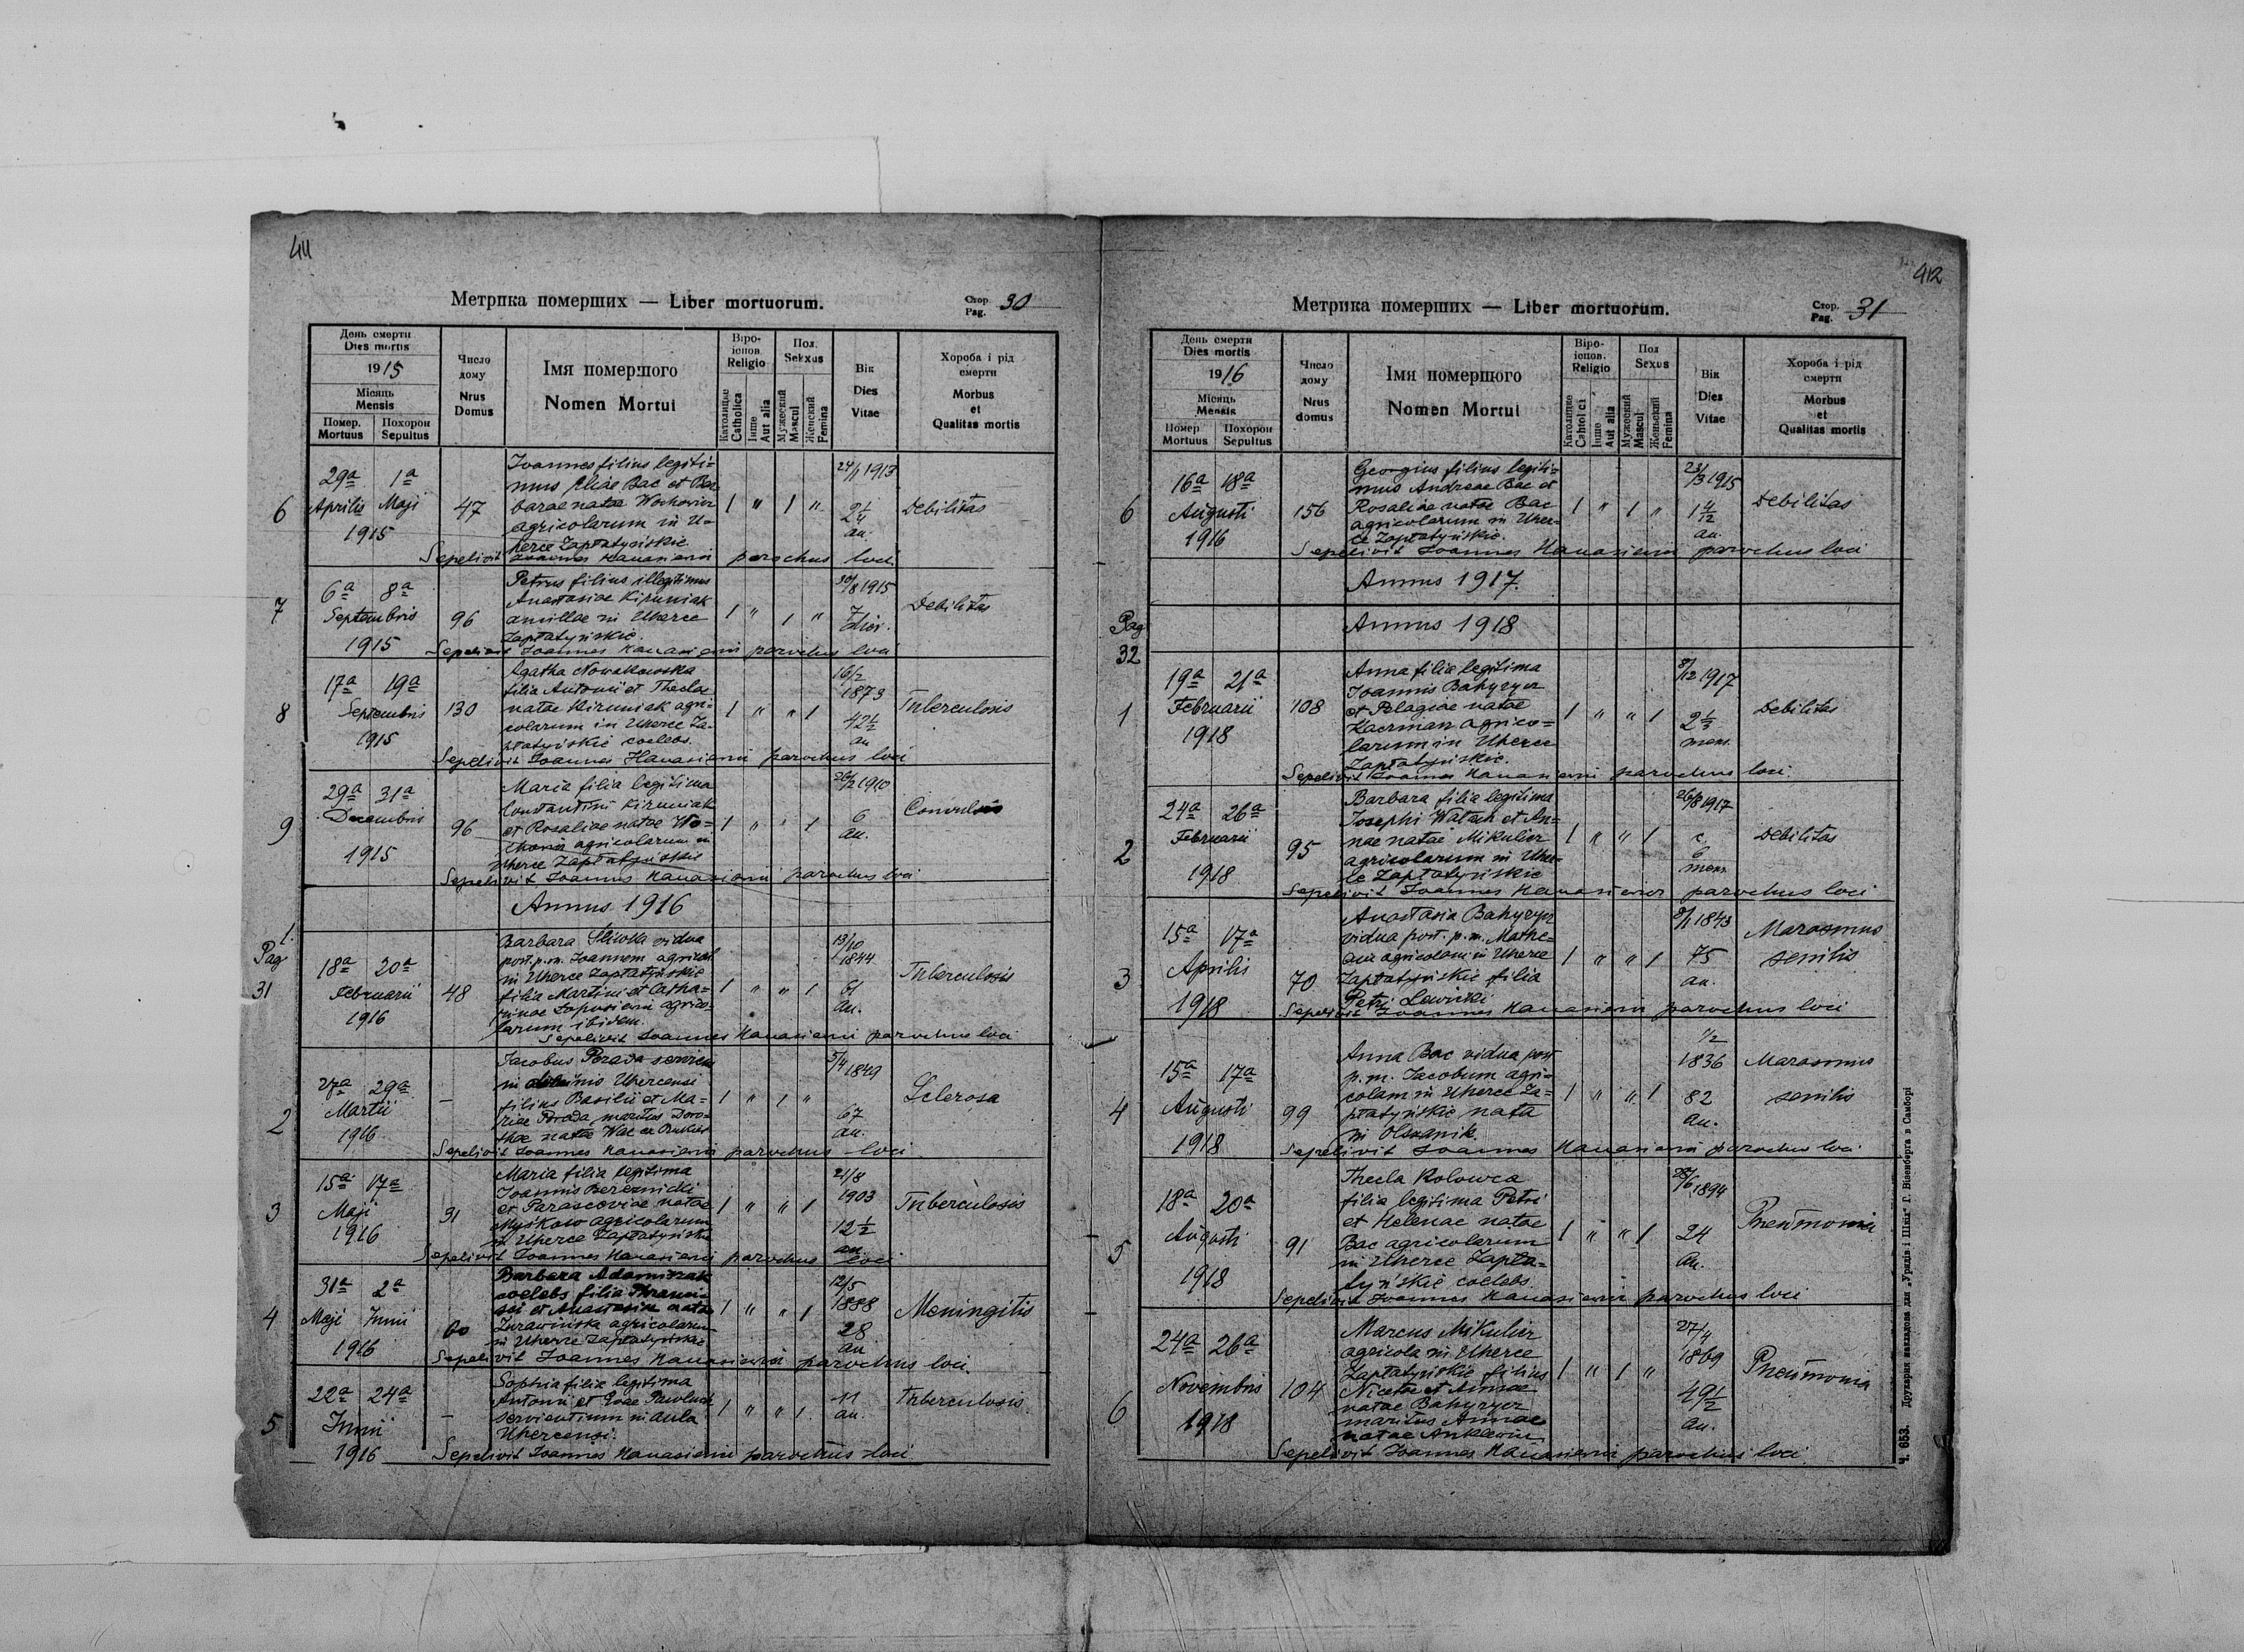 411
Метрика померших — Liber mortuorum.
Стор. Pag. 30
День смерти
Dies mortis
1915
Місяць
Mensis
Помер. Mortuus
Похорон Sepultus
Число дому
Nrus Domus
Імя помершого
Nomen Mortui
Віро-іспов.
Religio
Католицке Catholica
Інше Aut alia
Пол.
Sexus
Мужеский Mascul
Женский Femina
Вік
Dies Vitae
Хороба і рід смерти
Morbus et Qualitas mortis
6
29a 1a
Aprilis Maji
1915
47
Joannes filius legiti=
mus Eliae Bac et Bar
barae natae
agricolarum in U=
herce Zapłatyńskie.
1 " 1 "
24/1 1913
2 1/4
an.
Debilitas
Sepelivit Joannes parochus loci.
7
6a 8a
Septembris
1915
96
Petrus filius illegitimus
Anastasiae Kiruniak
ancillae in Uherce
Zapłatyńskie.
1 " 1 "
30/8 1915
7 dies.
Debilitas
Sepelivit Joannes parochus loci
8
17a 19a
Septembris
1915
130
Agatha Nowakowska
filia Antonii et Theclae
natae Kiruniak agri=
colarum in Uherce Za=
płatyńskie coelebs.
1 " " 1
16/2
1873
42 1/2
an
Tuberculosis
Sepelivit Joannes parochus loci
9
29a 31a
Decembris
1915
96
Maria filia legitima
Constantini Kiruniak
et Rosaliae natae Wo=
agricolarum in
Uherce Zapłatyńskie
1 " " 1
1910
6
an.
Sepelivit Joannes parochus loci
Annus 1916
1.
Pag
31
18a 20a
Februarii
1916
48
Barbara Śliwka vidua
post. p. m. Joannem agricol
in Uherce Zapłatyńskie
filia Martini et Catha=
rinae agrico=
larum ibidem.
1 " " 1
13/10
1844
an.
Tuberculosis
Sepelivit Joannes parochus loci
2
27a 29a
Martii
1916
—
Jacobus Porada serviens
in Uhercensi
filius Basilii et Ma=
riae Porada maritus Doro=
theae natae
1 " 1 "
5/4 1849
67
an.
Sclerosa
Sepelivit Joannes parochus loci
3
15a 17a
Maji
1916
31
Maria filia legitima
Joannis Bereznicki
et Parasceviae natae
Myśkow agricolarum
in Uherce Zapłatyńskie
1 " " 1
21/8
1903
12 1/2
an
Tuberculosis
Sepelivit Joannes parochus loci
4
31a 2a
Maji Junii
1916
60
Barbara Adamiszak
coelebs filia Franci=
sci et Anastasiae natae
Żurawińska agricolarum
in Uherce Zapłatyńskie
1 " " 1
12/5
1888
28
an
Meningitis
Sepelivit Joannes parochus loci
5
22a 24a
Junii
1916
—
Sophia filia legitima
Antonii et Evae Pawluch
servientium in aula
Uhercensi.
1 " " 1
11
an.
Tuberculosis
Sepelivit Joannes parochus loci
412
Метрика померших — Liber mortuorum.
Стор. Pag. 31
День смерти
Dies mortis
1916
Місяць
Mensis
Помер Mortuus
Похорон Sepultus
Число дому
Nrus domus
Імя помершого
Nomen Mortui
Віро-іспов.
Religio
Католицке Cahtolici
Інше Aut alia
Пол
Sexus
Мужеский Mascul
Женьский Femina
Вік
Dies Vitae
Хороба і рід смерти
Morbus et Qualitas mortis
6
16a 18a
Augusti
1916
156
Georgius filius legiti=
mus Andreae Bac et
Rosaliae natae Bac
agricolarum in Uher=
ce Zapłatyńskie.
1 " 1 "
23/3 1915
1 4/12
an.
Debilitas
Sepelivit Joannes parochus loci
Annus 1917.
Annus 1918
Pag
32
1
19a 21a
Februarii
1918
108
Anna filia legitima
Joannis Bahyrycz
et Pelagiae natae
Kacrmar agrico=
larum in Uherce
Zapłatyńskie.
1 " " 1
8/12 1917
2 1/3
mens.
Debilitas
Sepelivit Joannes parochus loci.
2
24a 26a
Februarii
1918
95
Barbara filia legitima
Josephi Watach et An=
nae natae Mikulicz
agricolarum in Uher=
ce Zapłatyńskie
1 " " 1
26/8 1917
c.
6
mens
Debilitas
Sepelivit Joannes parochus loci
3
15a 17a
Aprilis
1918
70
Anastasia Bahyrycz
vidua post. p. m. Mathe=
um agricolam in Uherce
Zapłatyńskie filia
Petri Lewicki
1 " " 1
8/1 1843
75
an.
Marasmus
senilis
Sepelivit Joannes parochus loci
4
15a 17a
Augusti
1918
99
Anna Bac vidua post
p. m. Jacobum agri=
colam in Uherce Za=
płatyńskie nata
in Olszanik.
1 " " 1
1/2
1836
82
an.
Marasmus
senilis
Sepelivit Joannes parochus loci
5
18a 20a
Augusti
1918
91
Thecla Kolowca
filia legitima Petri
et Helenae natae
Bac agricolarum
in Uherce Zapła=
tyńskie coelebs
1 " " 1
28/6 1894
24
an.
Pneumonia
Sepelivit Joannes parochus loci
6
24a 26a
Novembris
1918
104
Marcus Mikulicz
agricola in Uherce
Zapłatyńskie filius
Nicetae et Annae
natae Bahyrycz
maritus Annae
natae
1 " 1 "
27/4
1869
49 1/2
an.
Pneumonia
Sepelivit Joannes parochus loci
Ч. 653. Друкарня накладова для „Урядів і Шкіл“ Г. Візенберга в Самборі